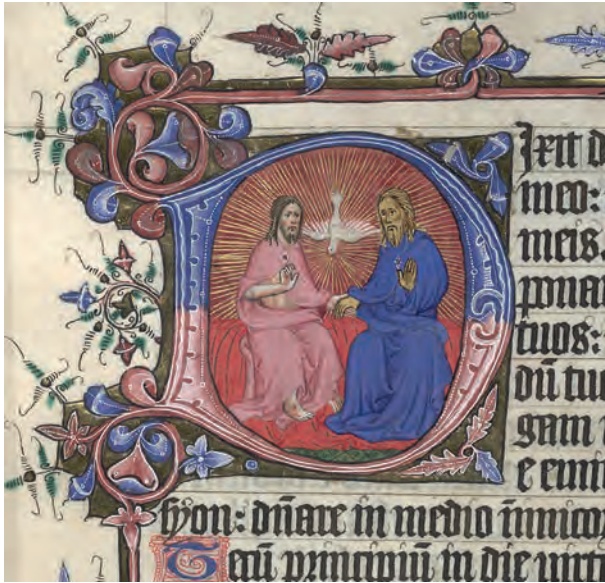 Dixit d
meo:
meis.
pona
tuos:
dū tu
gam
e emit
syon: dn̄are in medio inimico
Tecū principiū in die uirt